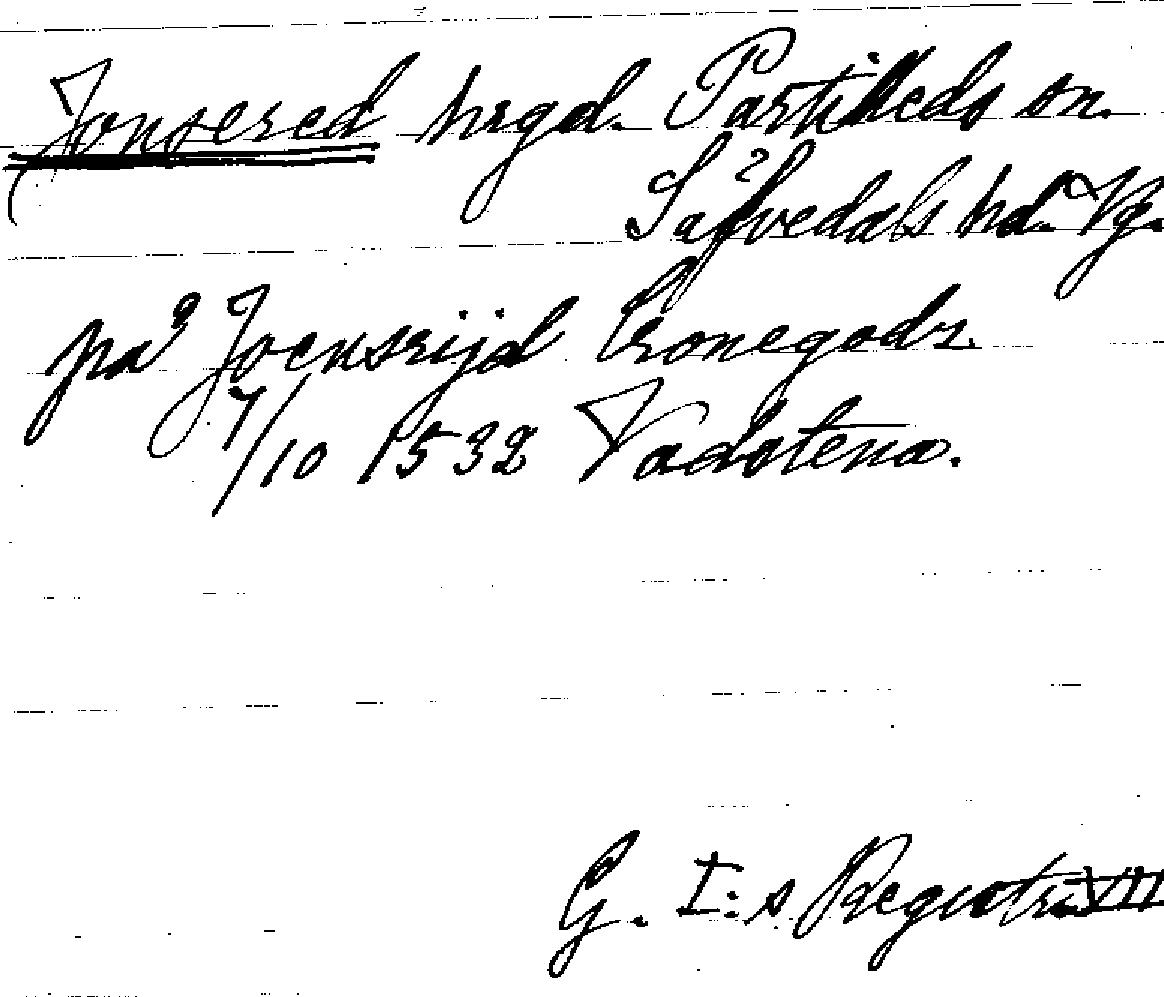 Jonsered hrgd. Partilleds sn.
Säfvedals hd. Vg.
på Joensrijd Cronegodz
7/10 1532 Vadstena.
G. I:s Registr. VIII